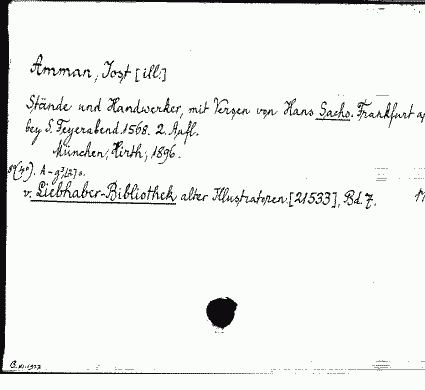 Amman, Jost [ill.]
Stände und Handwerker, mit Versen von Hans Sachs. Frankfurt a
bey S. Feyerabend. 1568. 2. Aufl.
München, Hirth, 1896.
8°(4°). A-
v. Liebhaber-Bibliothek alter Illustratoren. [21533], Bd. 7.